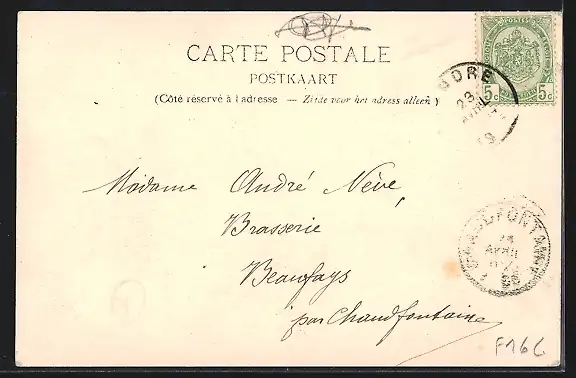 CARTE POSTALE
POSTKAART
(Côté réservé à l'adresse — Zijde voor het adress alleen)
POSTES
5c 5c
Madame André Nève,
Brasserie
Beaufays
par Chaudfontaine
CHAUDFONTAINE
AVRIL
F16C